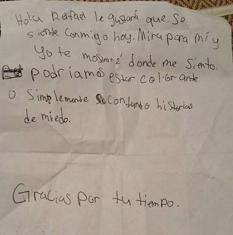 Hola Rafael le gustaría que se
siente conmigo hoy. Mira para mí y
yo te mostraré donde me siento.
podríamos estar colorante
o simplemente contando historias
de miedo.
Gracias por tu tiempo.